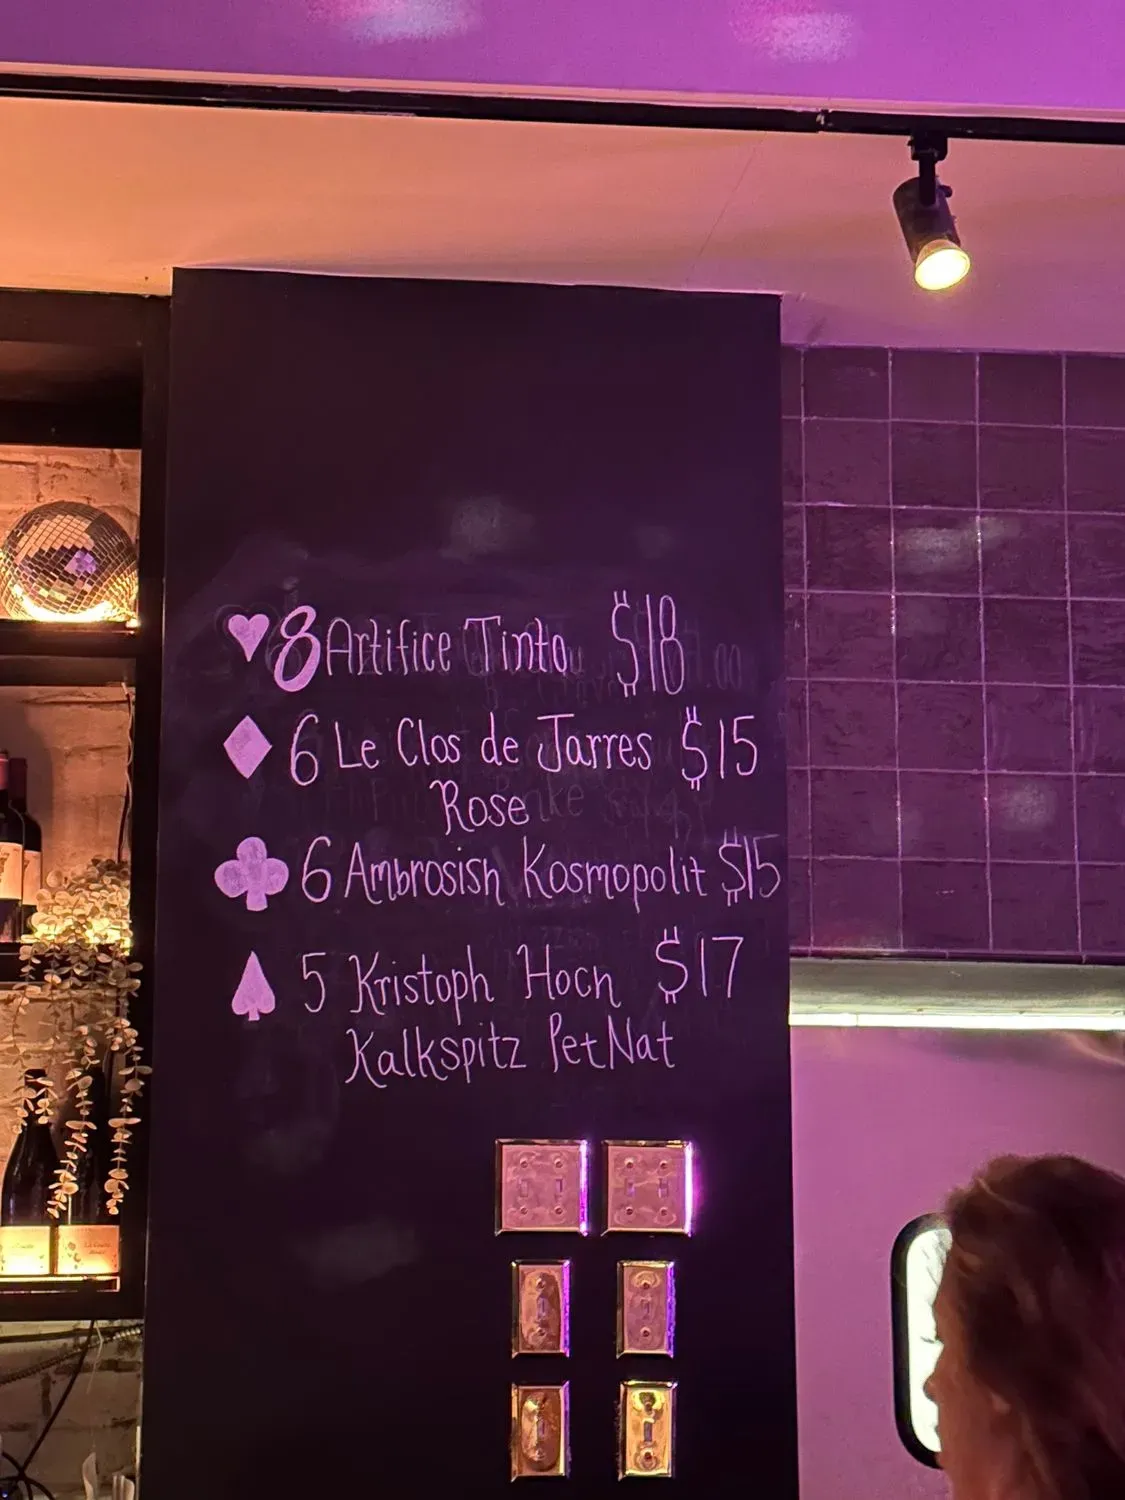 ♥ 8 Artifice Tinto $18
♦ 6 Le Clos de Jarres $15
Rose
♣ 6 Ambrosish Kosmopolit $15
♠ 5 Kristoph Hoch $17
Kalkspitz PetNat